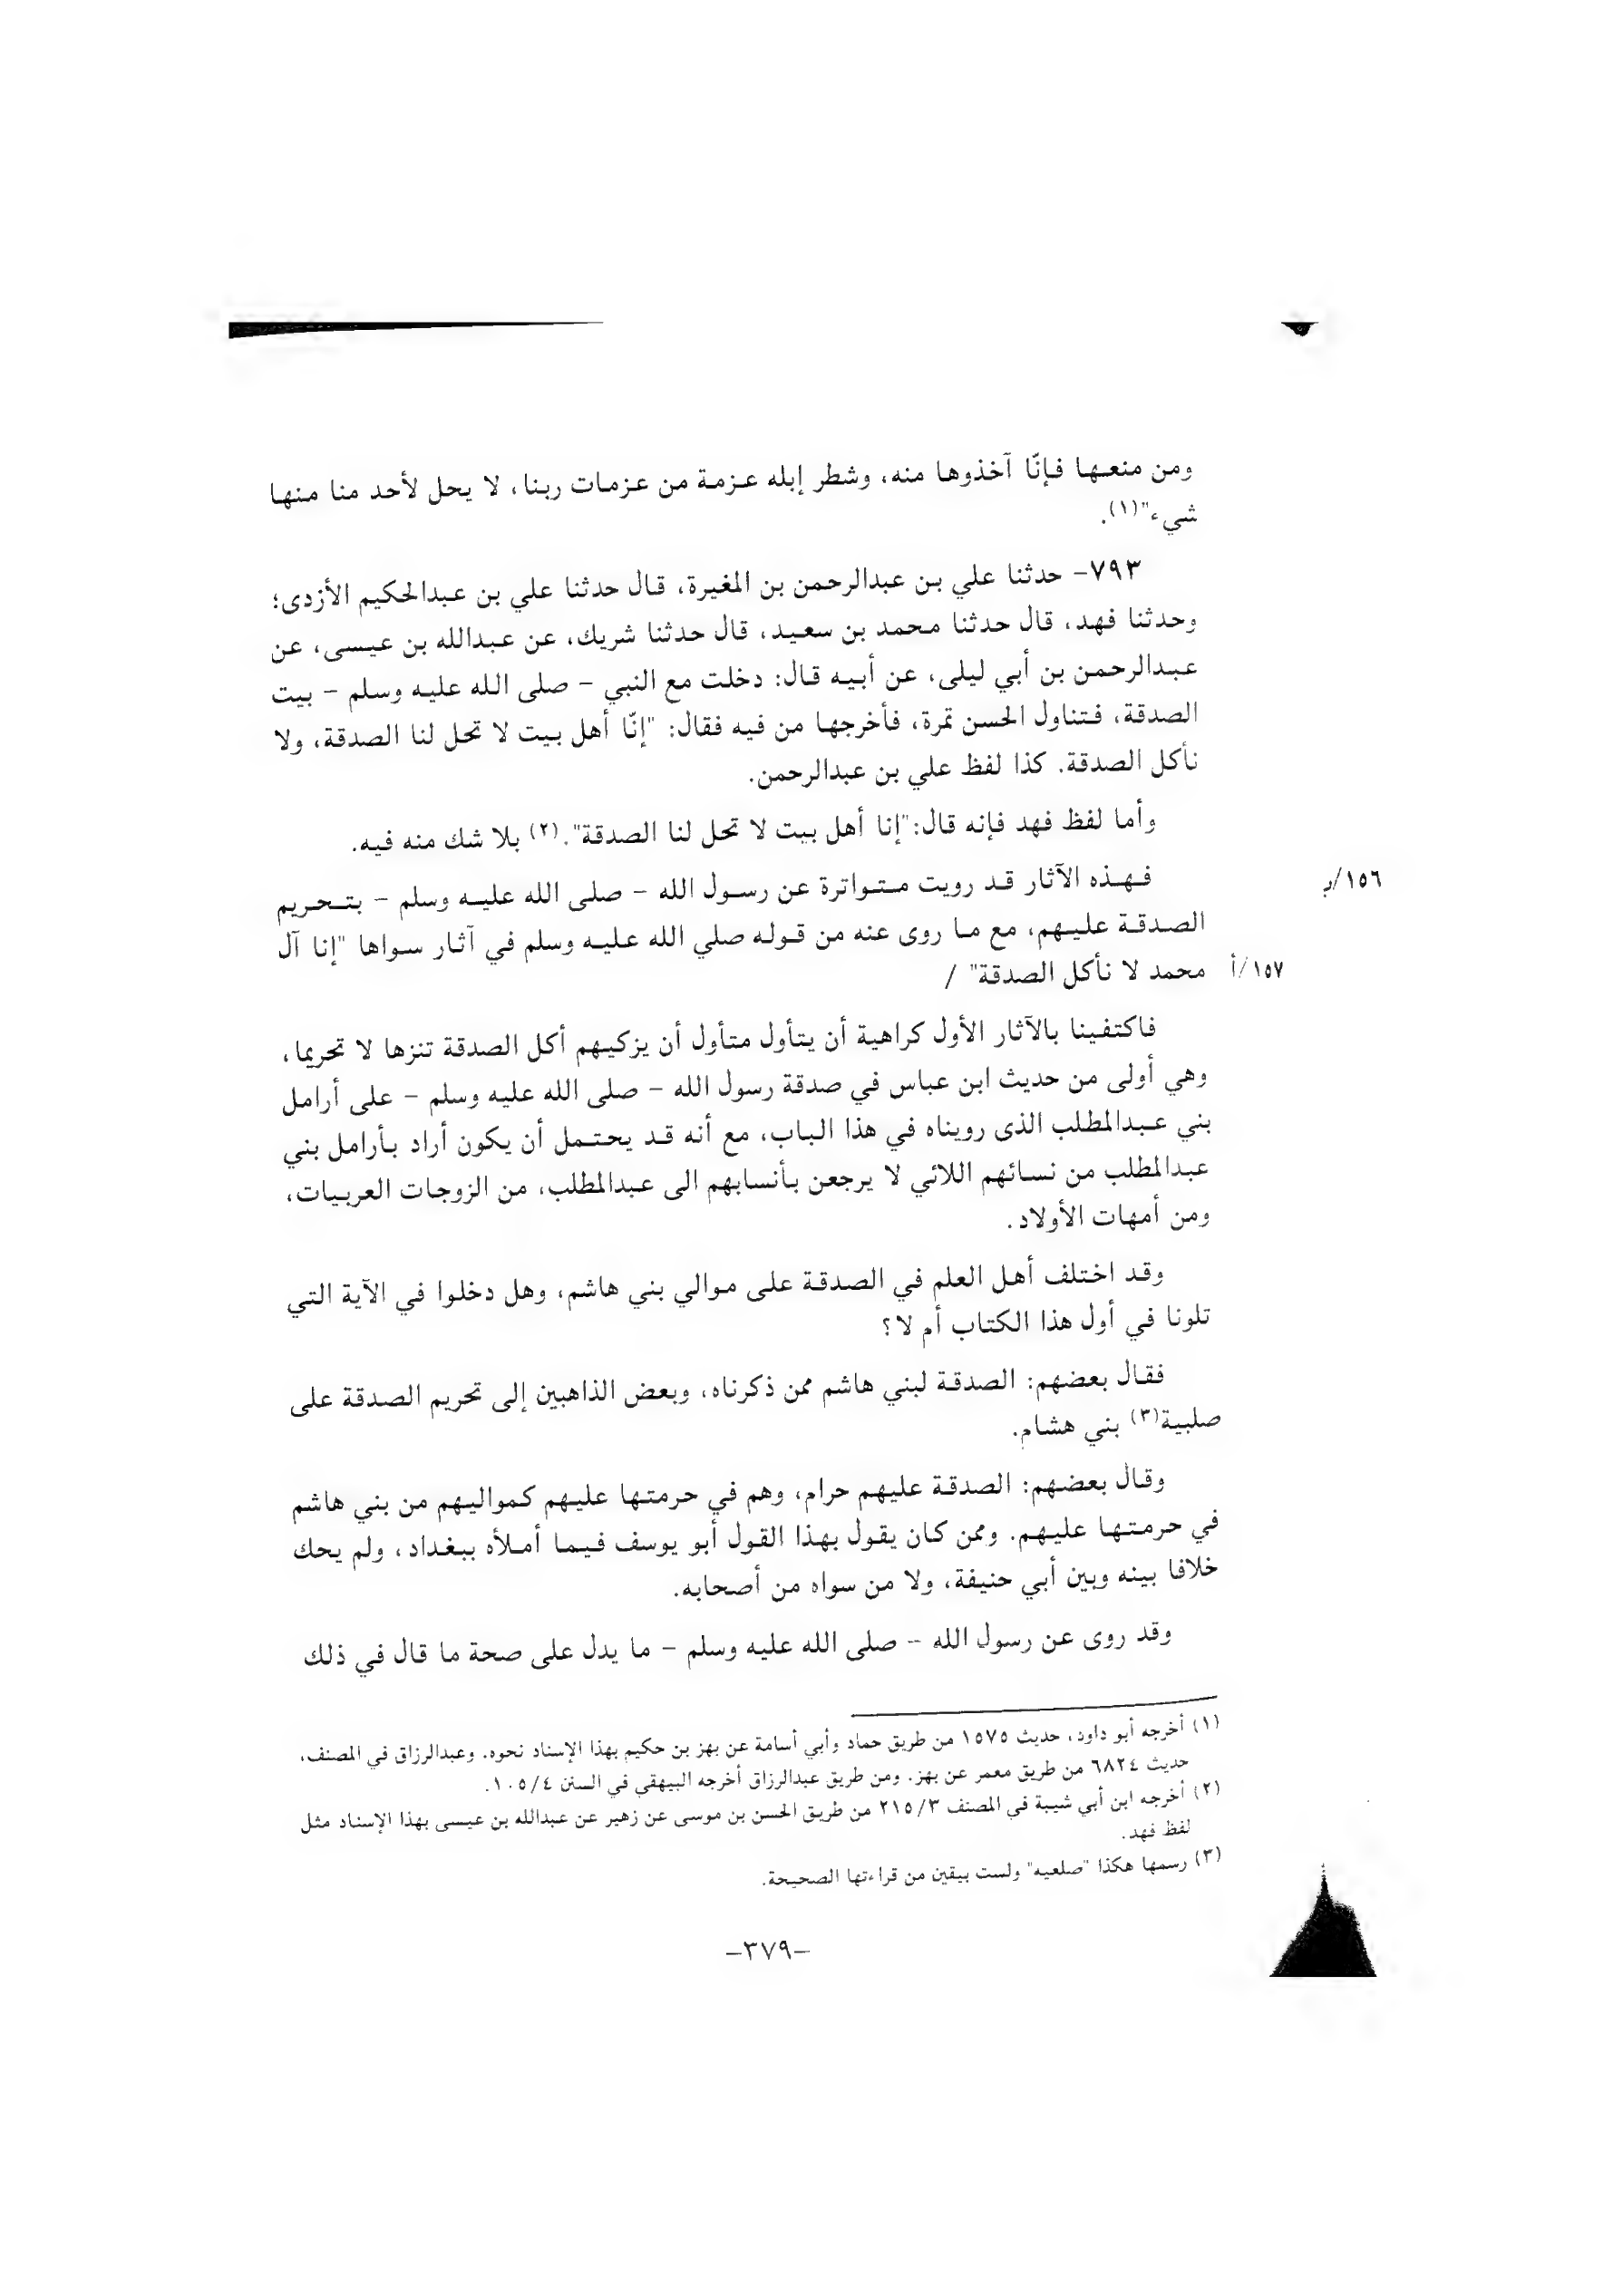 ومن منعها فإنّا آخذوها منه، وشطر إبله عزمة من عزمات ربنا، لا يحل لأحد منا منها
شيء"(١).
٧٩٣- حدثنا علي بن عبدالرحمن بن المغيرة، قال حدثنا علي بن عبدالحكيم الأزدى؛
وحدثنا فهد، قال حدثنا محمد بن سعيد، قال حدثنا شريك، عن عبدالله بن عيسى، عن
عبدالرحمن بن أبي ليلى، عن أبيه قال: دخلت مع النبي - صلى الله عليه وسلم - بيت
الصدقة، فتناول الحسن تمرة، فأخرجها من فيه فقال: "إنّا أهل بيت لا تحل لنا الصدقة، ولا
نأكل الصدقة. كذا لفظ علي بن عبدالرحمن.
وأما لفظ فهد فإنه قال:"إنا أهل بيت لا تحل لنا الصدقة".(٢) بلا شك منه فيه.
١٥٦/ب فهذه الآثار قد رويت متواترة عن رسول الله - صلى الله عليه وسلم - بتحريم
الصدقة عليهم، مع ما روى عنه من قوله صلي الله عليه وسلم في آثار سواها "إنا آل
١٥٧/أ محمد لا نأكل الصدقة" /
فاكتفينا بالآثار الأول كراهية أن يتأول متأول أن يزكيهم أكل الصدقة تنزها لا تحريما،
وهي أولى من حديث ابن عباس في صدقة رسول الله - صلى الله عليه وسلم - على أرامل
بني عبدالمطلب الذى رويناه في هذا الباب، مع أنه قد يحتمل أن يكون أراد بأرامل بني
عبدالمطلب من نسائهم اللائي لا يرجعن بأنسابهم الى عبدالمطلب، من الزوجات العربيات،
ومن أمهات الأولاد.
وقد اختلف أهل العلم في الصدقة على موالي بني هاشم، وهل دخلوا في الآية التي
تلونا في أول هذا الكتاب أم لا؟
فقال بعضهم: الصدقة لبني هاشم ممن ذكرناه، وبعض الذاهبين إلى تحريم الصدقة على
صلبية(٣) بني هشام.
وقال بعضهم: الصدقة عليهم حرام، وهم في حرمتها عليهم كمواليهم من بني هاشم
في حرمتها عليهم. وممن كان يقول بهذا القول أبو يوسف فيما أملأه ببغداد، ولم يحك
خلافا بينه وبين أبي حنيفة، ولا من سواه من أصحابه.
وقد روى عن رسول الله - صلى الله عليه وسلم - ما يدل على صحة ما قال في ذلك
(١) أخرجه أبو داود، حديث ١٥٧٥ من طريق حماد وأبي أسامة عن بهز بن حكيم بهذا الإسناد نحوه. وعبدالرزاق في المصنف،
حديث ٦٨٢٤ من طريق معمر عن بهز. ومن طريق عبدالرزاق أخرجه البيهقي في السنن ١٠٥/٤.
(٢) أخرجه ابن أبي شيبة في المصنف ٢١٥/٣ من طريق الحسن بن موسى عن زهير عن عبدالله بن عيسى بهذا الإسناد مثل
لفظ فهد.
(٣) رسمها هكذا "صلعيه" ولست بيقين من قراءتها الصحيحة.
-٣٧٩-